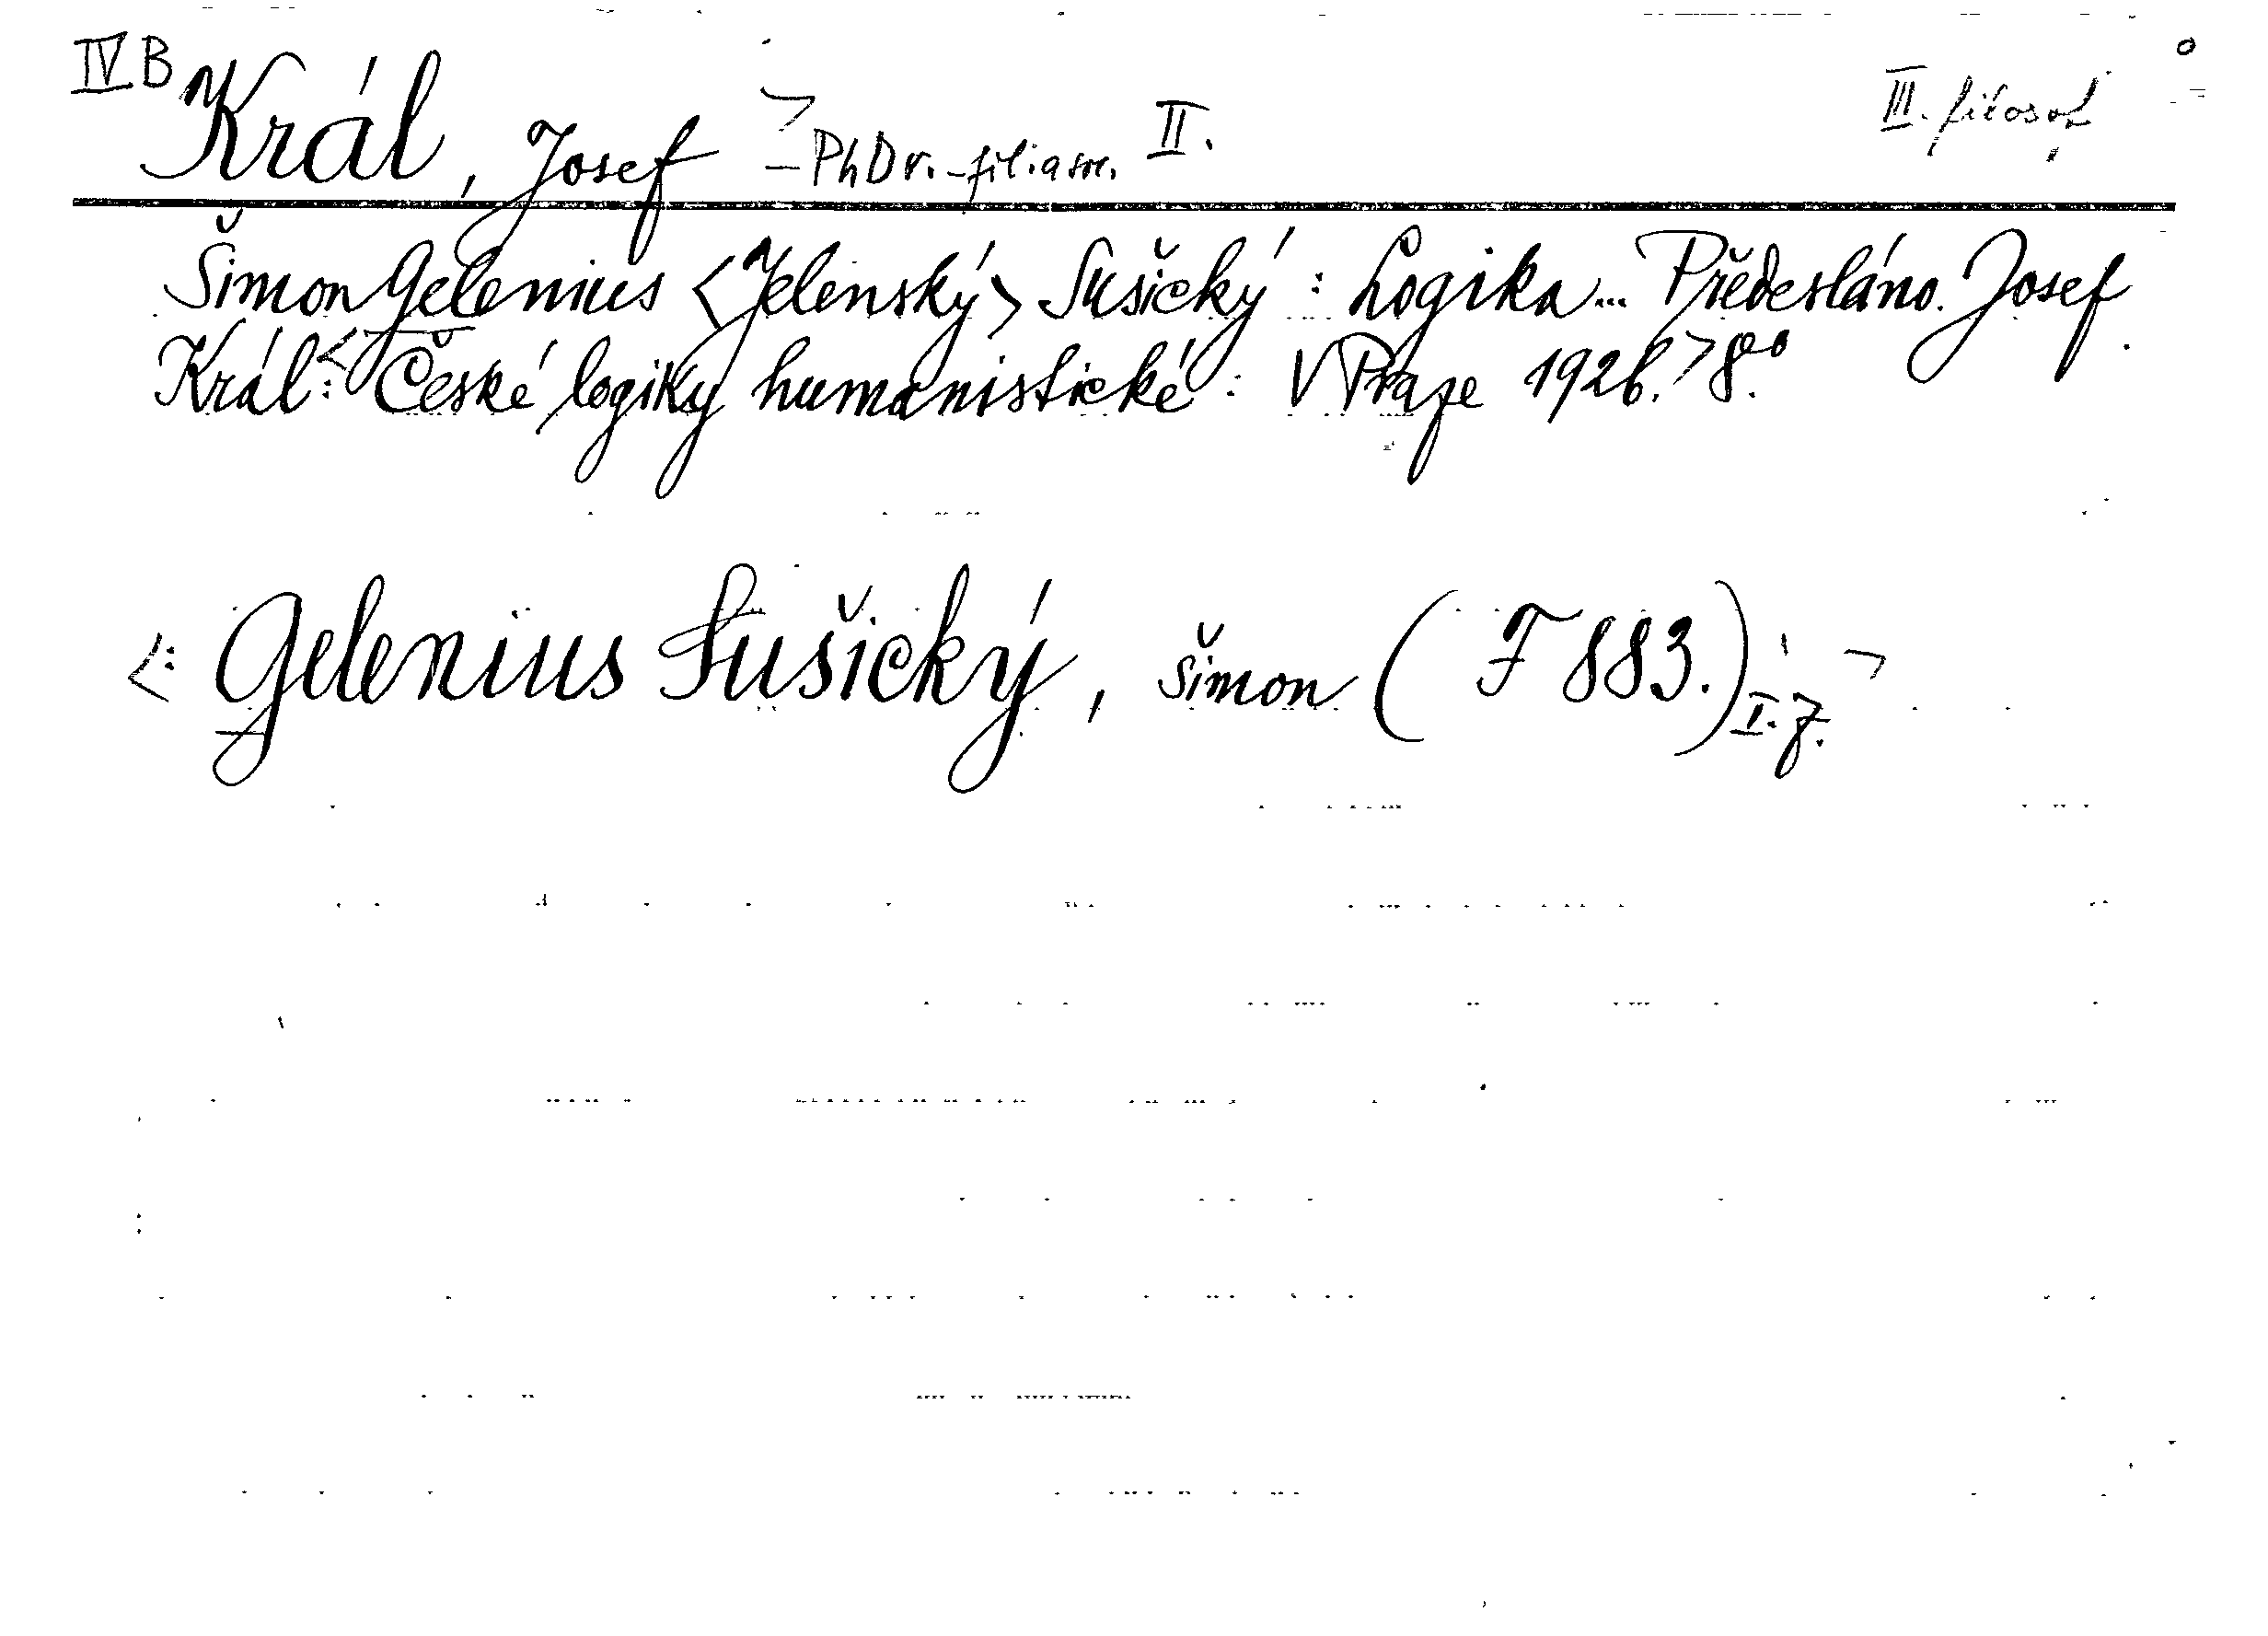 IV B Král, Josef – PhDr. – II. III. filosof
Šimon Gelenius <Jelenský> Sušický : Logika... Předesláno. Josef
Král: <České logiky humanistické: V Praze 1926.> 8.°
<: Gelenius Sušický, Šimon (F 883.) I. j. >